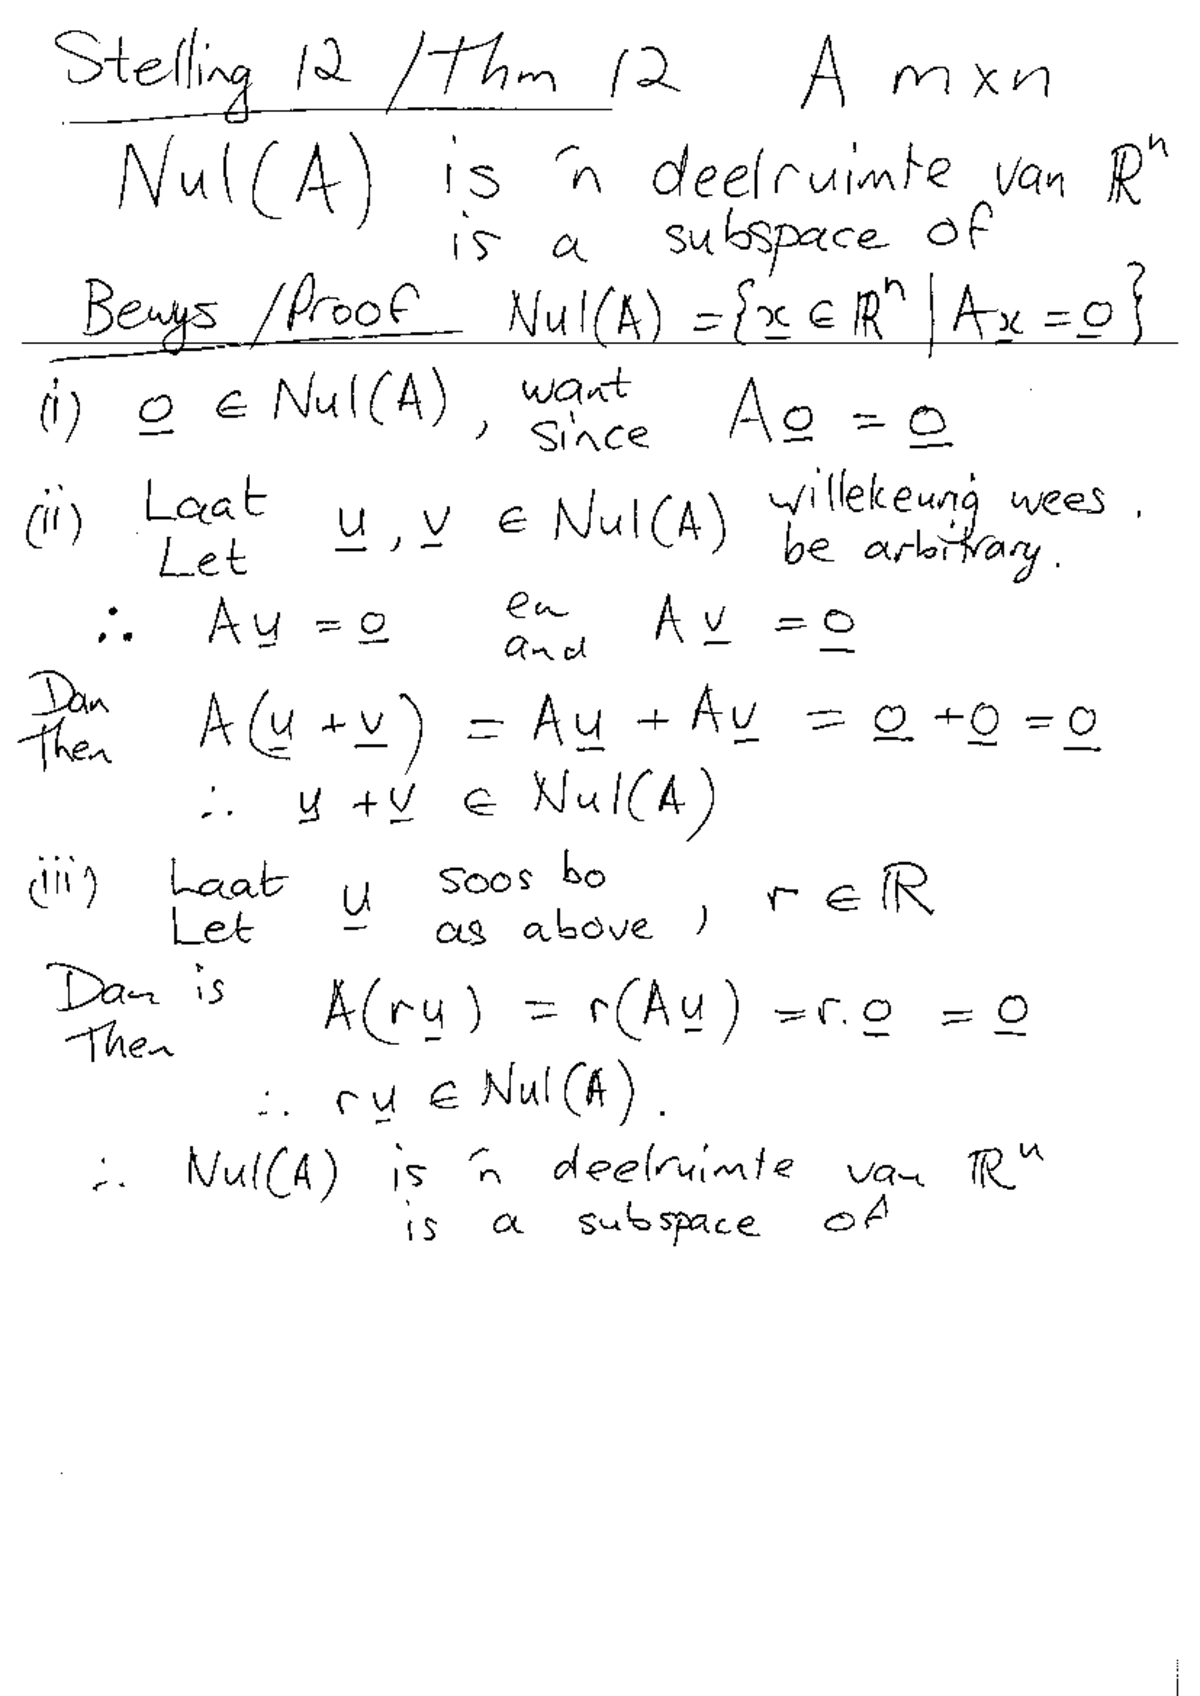 Stelling 12 / Thm 12 A m×n
Nul(A) is 'n deelruimte van ℝⁿ
is a subspace of
Bewys / Proof Nul(A) = {x̲ ∈ ℝⁿ | Ax̲ = 0̲}
(i) 0̲ ∈ Nul(A), want
since A0̲ = 0̲
(ii) Laat u̲, v̲ ∈ Nul(A) willekeurig wees.
Let be arbitrary.
∴ Au̲ = 0̲ en Av̲ = 0̲
and
Dan A(u̲ + v̲) = Au̲ + Av̲ = 0̲ + 0̲ = 0̲
Then
∴ u̲ + v̲ ∈ Nul(A)
(iii) Laat u̲ soos bo, r ∈ ℝ
Let as above
Dan is A(ru̲) = r(Au̲) = r.0̲ = 0̲
Then
∴ ru̲ ∈ Nul(A).
∴ Nul(A) is 'n deelruimte van ℝⁿ
is a subspace of